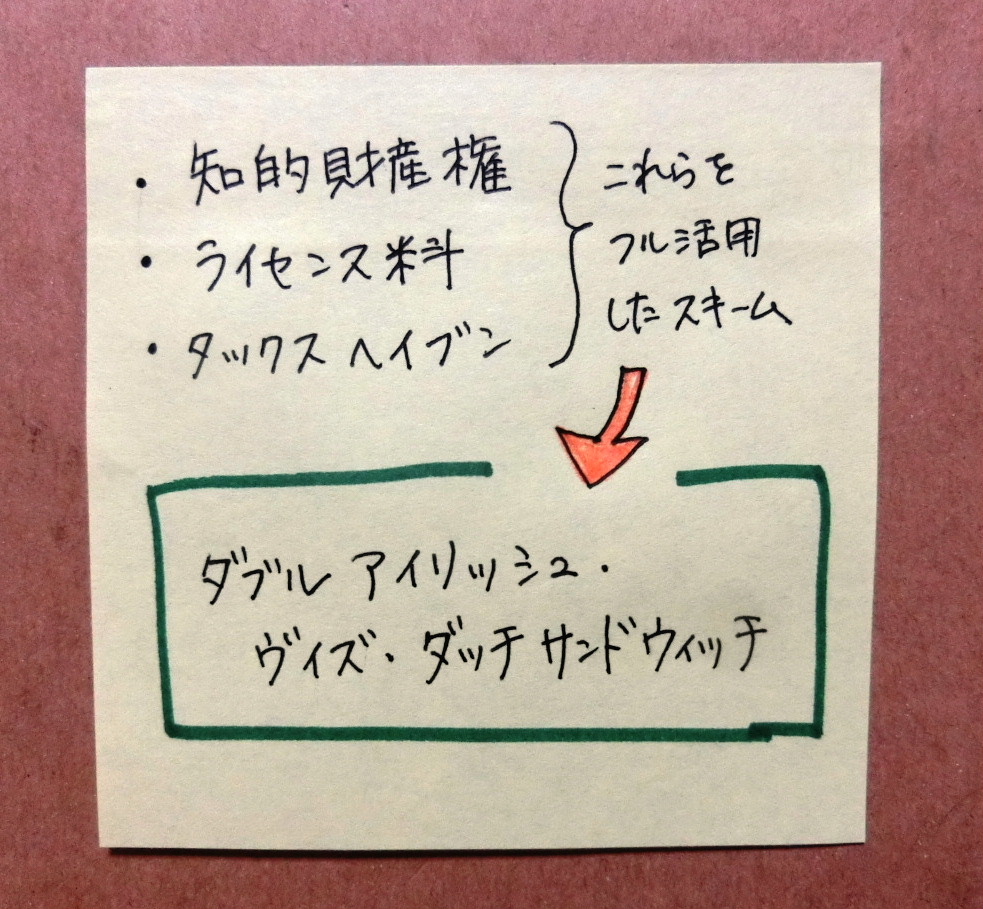 ・知的財産権
・ライセンス料
・タックスヘイブン
これらを
フル活用
したスキーム
ダブルアイリッシュ・
ヴィズ・ダッチサンドウィッチ